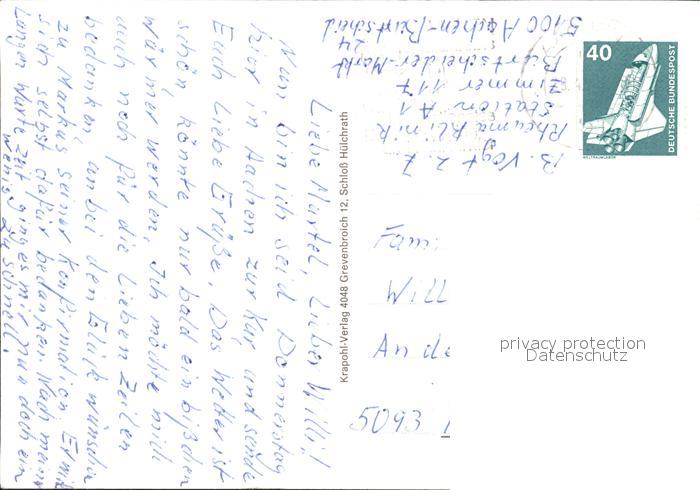 Liebe Martel, Lieber Willi!
Nun bin ich seid Donnerstag
hier in Aachen zur Kur und sende
Euch Liebe Grüße. Das Wetter ist
schön, könnte nur bald ein bißchen
wärmer werden. Ich möchte mich
auch noch für die Lieben Zeilen
bedanken an bei den Glück wünschen
zu Markus seiner Konfirmation. Er wird
sich selbst dafür bedanken. Nach meiner
Langen Warte Zeit ging es mir nun doch ein
wenig zu schnell.
B. Vogt z. Z.
Rheumaklinik
Station A1
Zimmer 117
Burtscheider-Markt
24
5100 Aachen-Burtscheid
Krapohl-Verlag 4048 Grevenbroich 12, Schloß Hülchrath
40
DEUTSCHE BUNDESPOST
WELTRAUMLABOR
Fam
Willi
An de
5093
privacy protection
Datenschutz